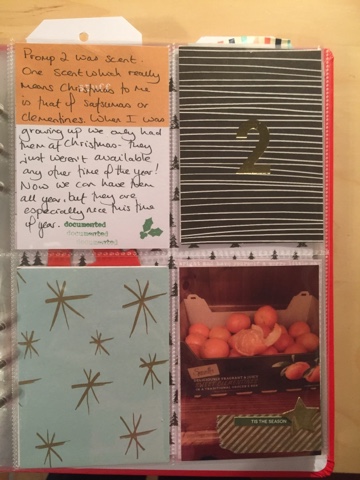 Promp 2 was scent.
One scent which really
means Christmas to me
is that of satsumas or
clementines. When I was
growing up we only had
them at Christmas - they
just weren't available
any other time of the year!
Now we can have them
all year, but they are
especially nice this time
of year.
documented
documented
documented
2
TIS THE SEASON